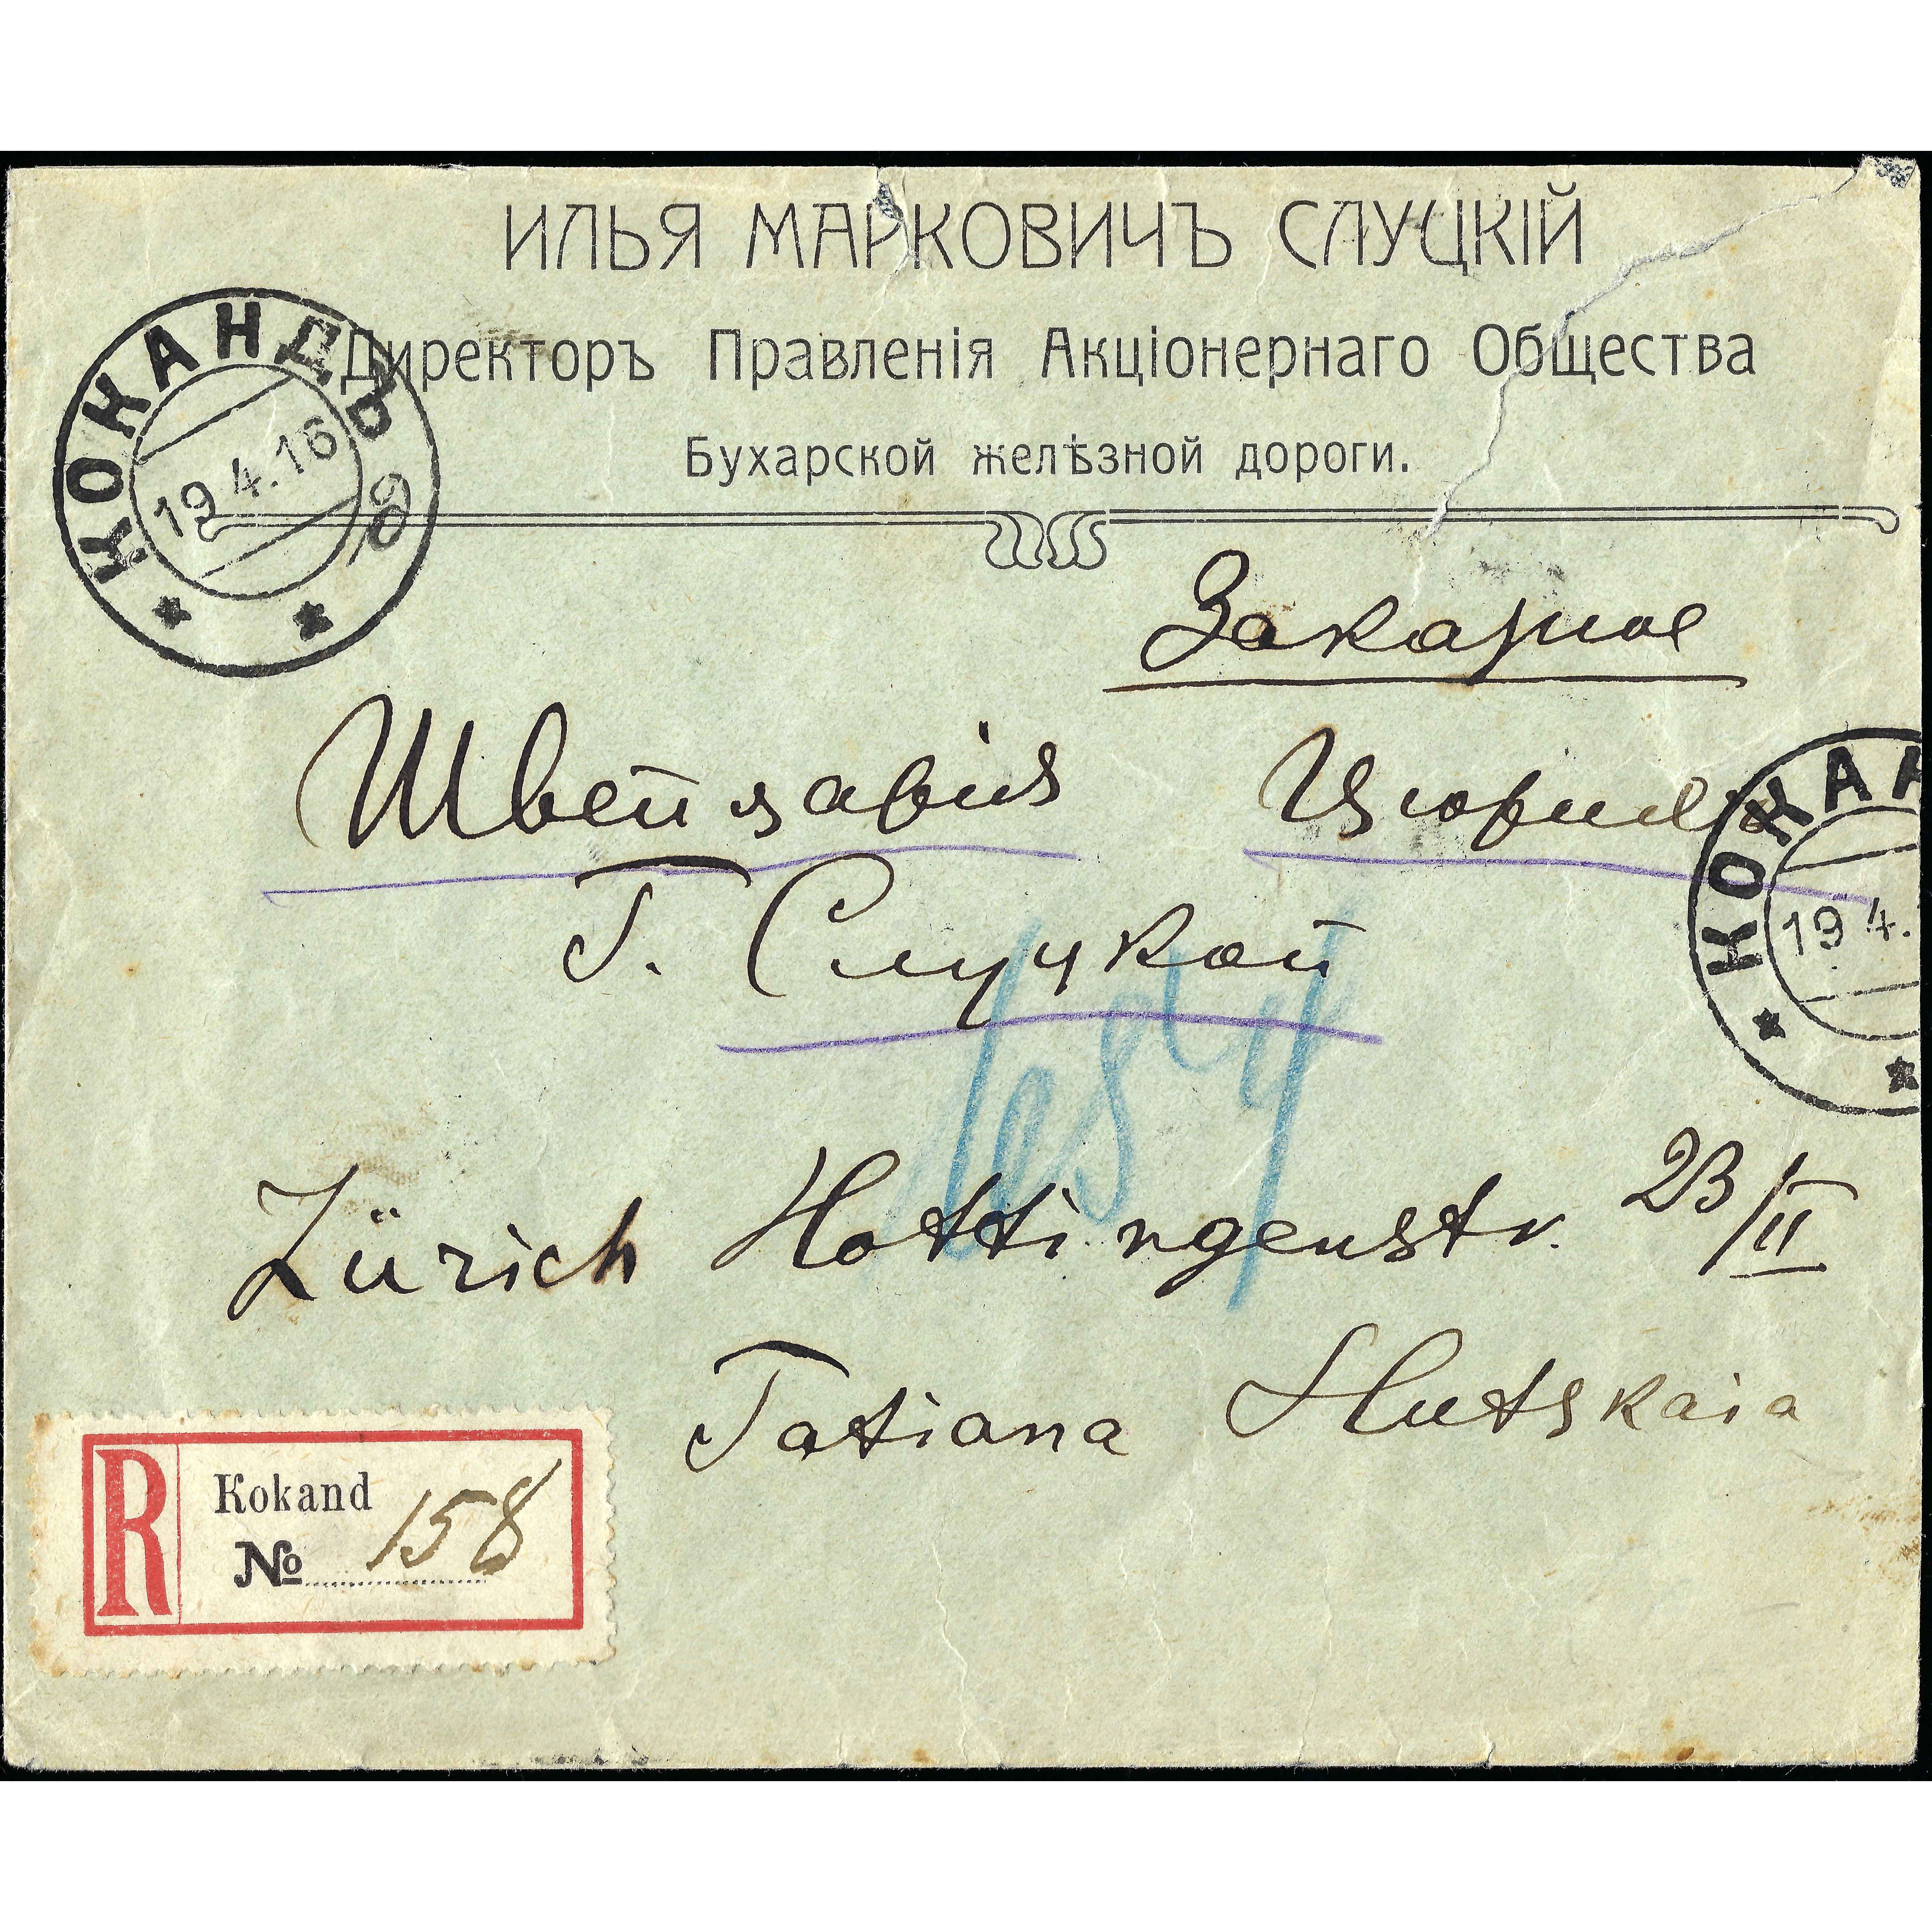 ИЛЬЯ МАРКОВИЧЪ СЛУЦКІЙ
Директоръ Правленія Акціонернаго Общества
Бухарской желѣзной дороги.
КОКАНДЪ
19.4.16
Заказное
Швейцарія Цюрихъ
КОКАН
19 4.
Г. Слуцкой
Zürich Hottingenstr. 23/II
Tatiana Slutskaia
R Kokand
№ 158